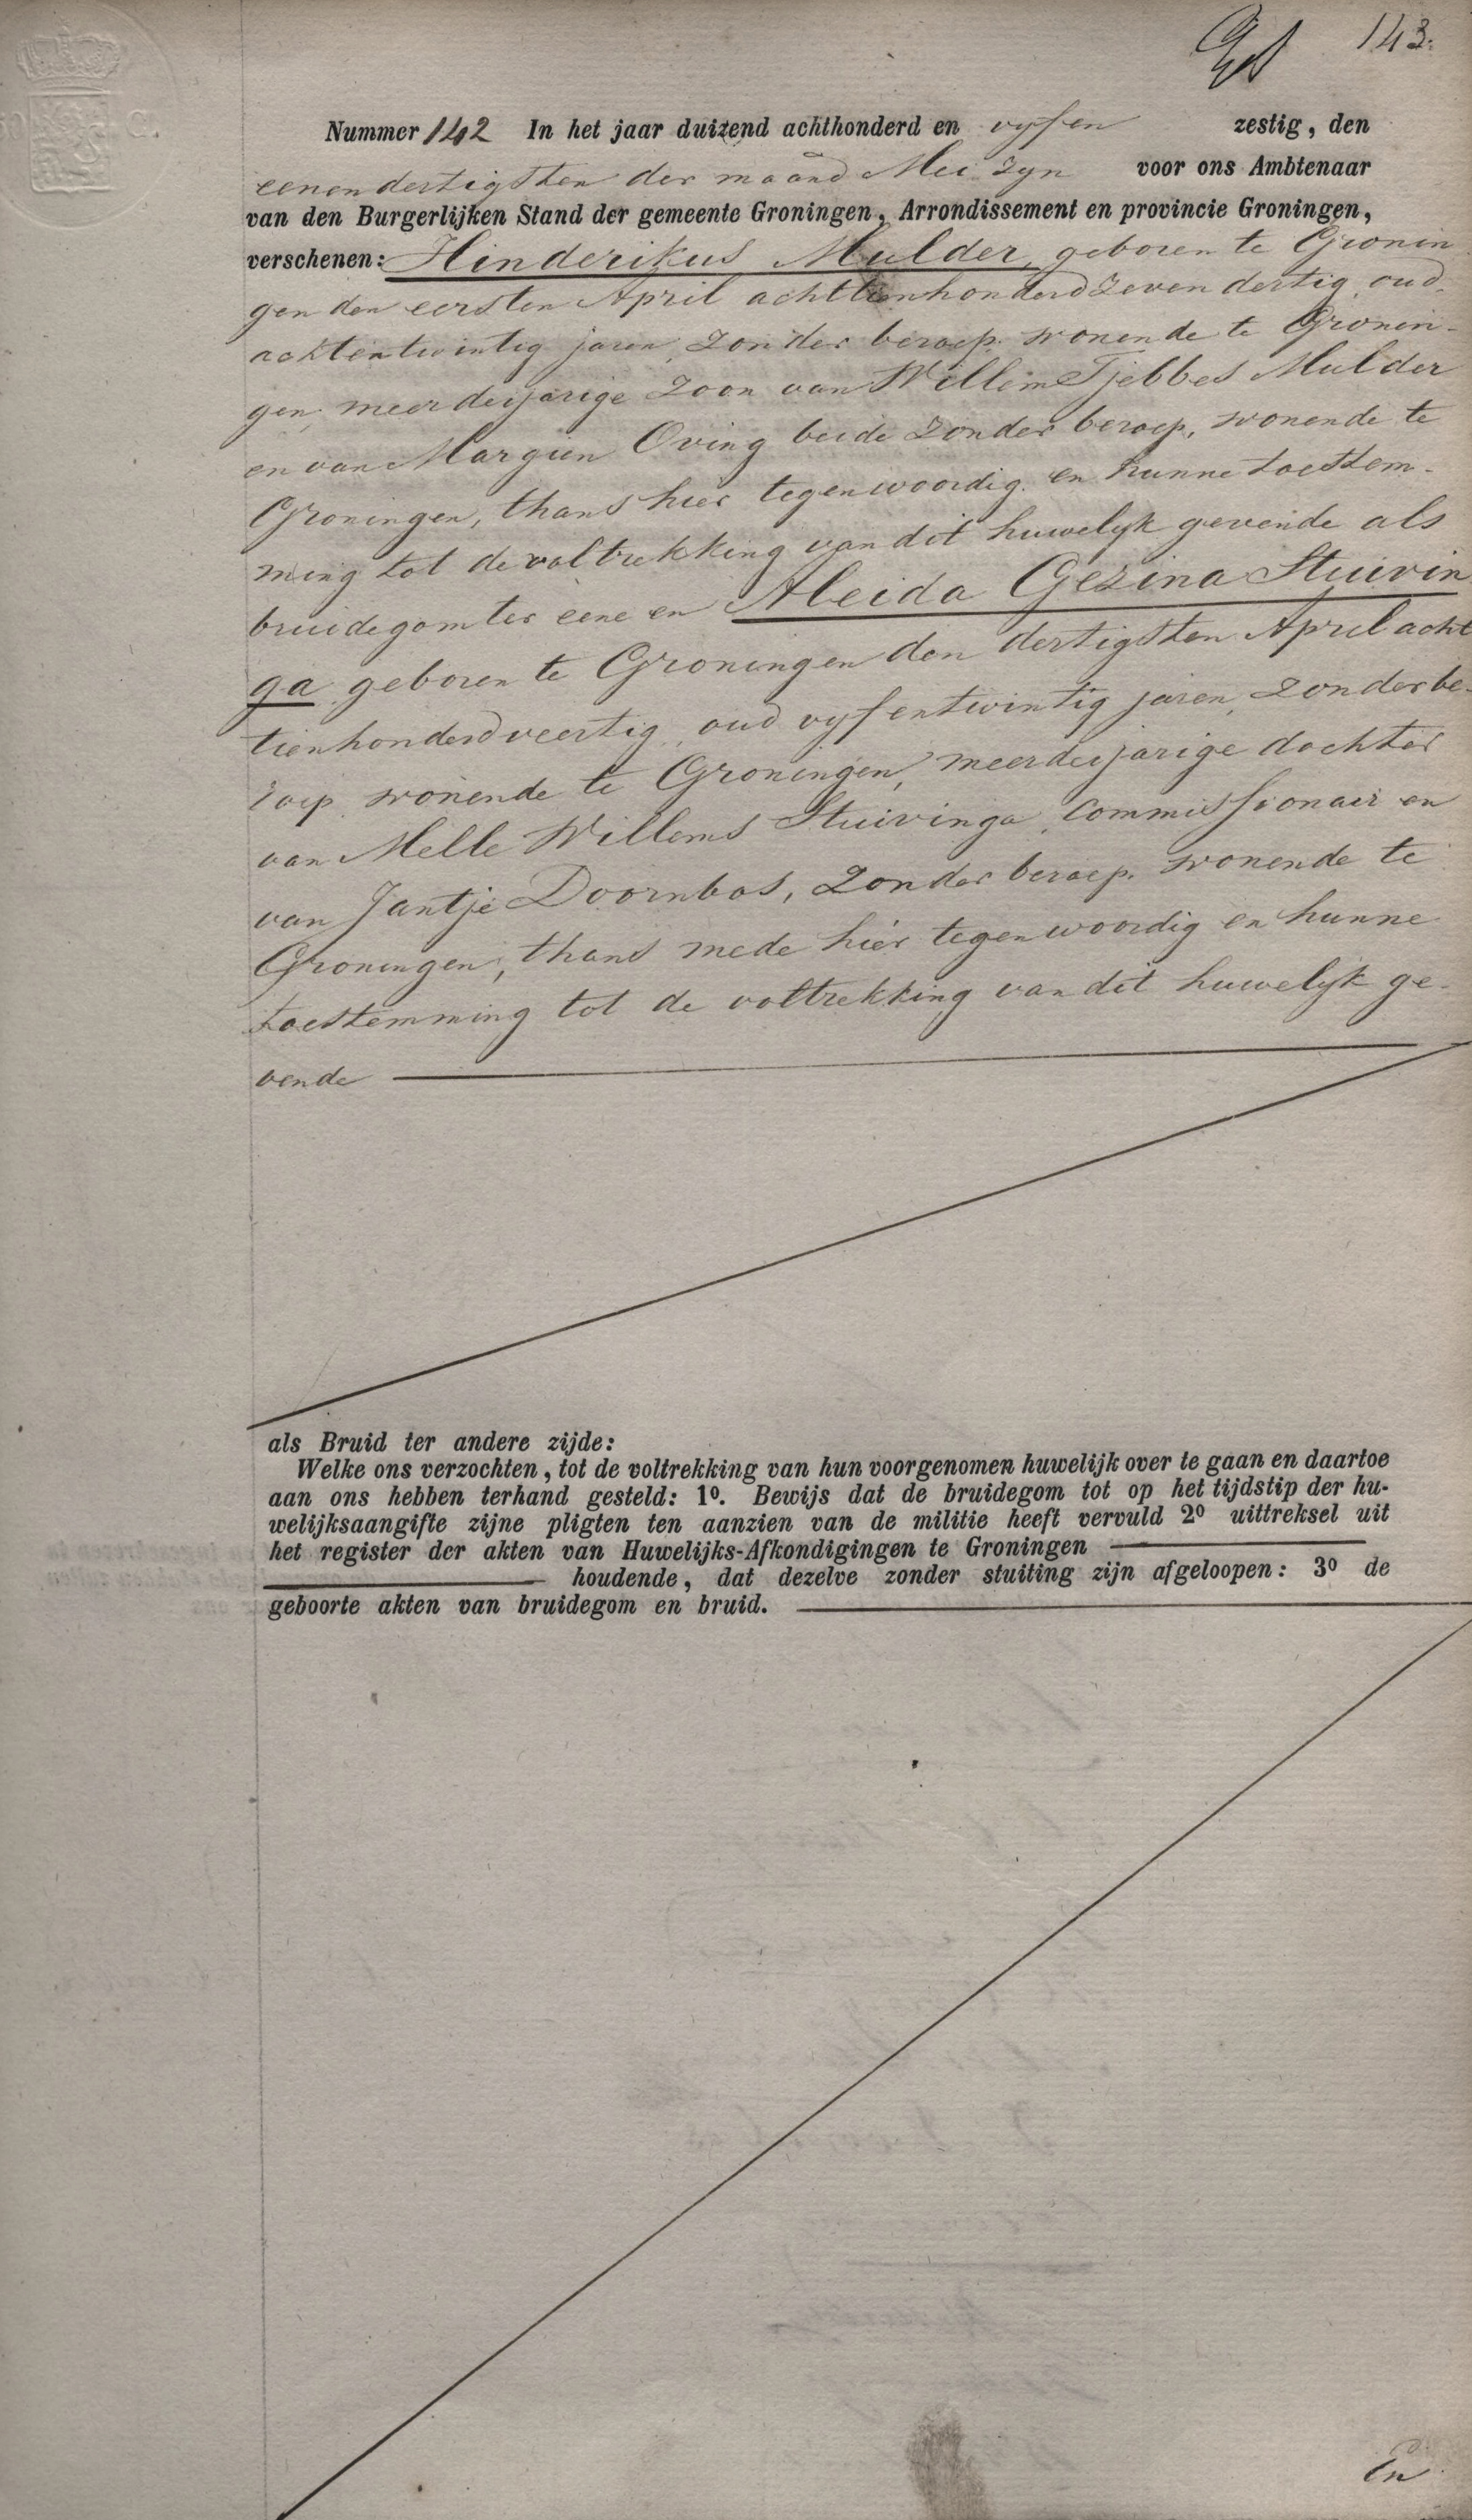 143.
Nummer 142 In het jaar duizend achthonderd en vyf en zestig, den
eenendertigsten der maand Mei zyn voor ons Ambtenaar
van den Burgerlijken Stand der gemeente Groningen, Arrondissement en provincie Groningen,
verschenen: Hinderikus Mulder, geboren te Gronin
gen den eersten April achttienhonderd zeven dertig, oud
achtentwintig jaren, zonder beroep, wonende te Gronin-
gen, meerderjarige zoon van Willem Tjebbes Mulder
en van Margien Oving beide zonder beroep, wonende te
Groningen, thans hier tegenwoordig en hunne toestem-
ming tot de voltrekking van dit huwelyk gevende als
bruidegom ter eene en Aleida Gezina Stuivin
ga geboren te Groningen den dertigsten April acht
tienhonderd veertig, oud vyfentwintig jaren, zonder be-
roep wonende te Groningen, meerderjarige dochter
van Melle Willems Stuivinga, Commissionair en
van Jantje Doornbos, zonder beroep, wonende te
Groningen, thans mede hier tegenwoordig en hunne
toestemming tot de voltrekking van dit huwelyk ge-
vende
als Bruid ter andere zijde:
Welke ons verzochten, tot de voltrekking van hun voorgenomen huwelijk over te gaan en daartoe
aan ons hebben terhand gesteld: 1º. Bewijs dat de bruidegom tot op het tijdstip der hu-
welijksaangifte zijne pligten ten aanzien van de militie heeft vervuld 2º uittreksel uit
het register der akten van Huwelijks-Afkondigingen te Groningen
houdende, dat dezelve zonder stuiting zijn afgeloopen: 3º de
geboorte akten van bruidegom en bruid.
En